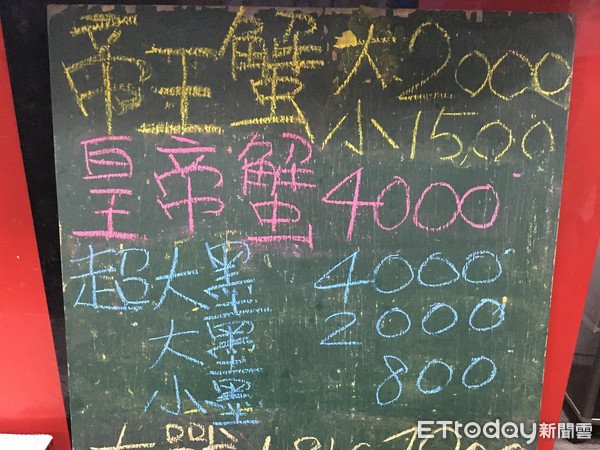 帝王蟹 大2000
小1500
皇帝蟹4000
超大墨 4000
大墨 2000
小墨 800
ETtoday新聞雲